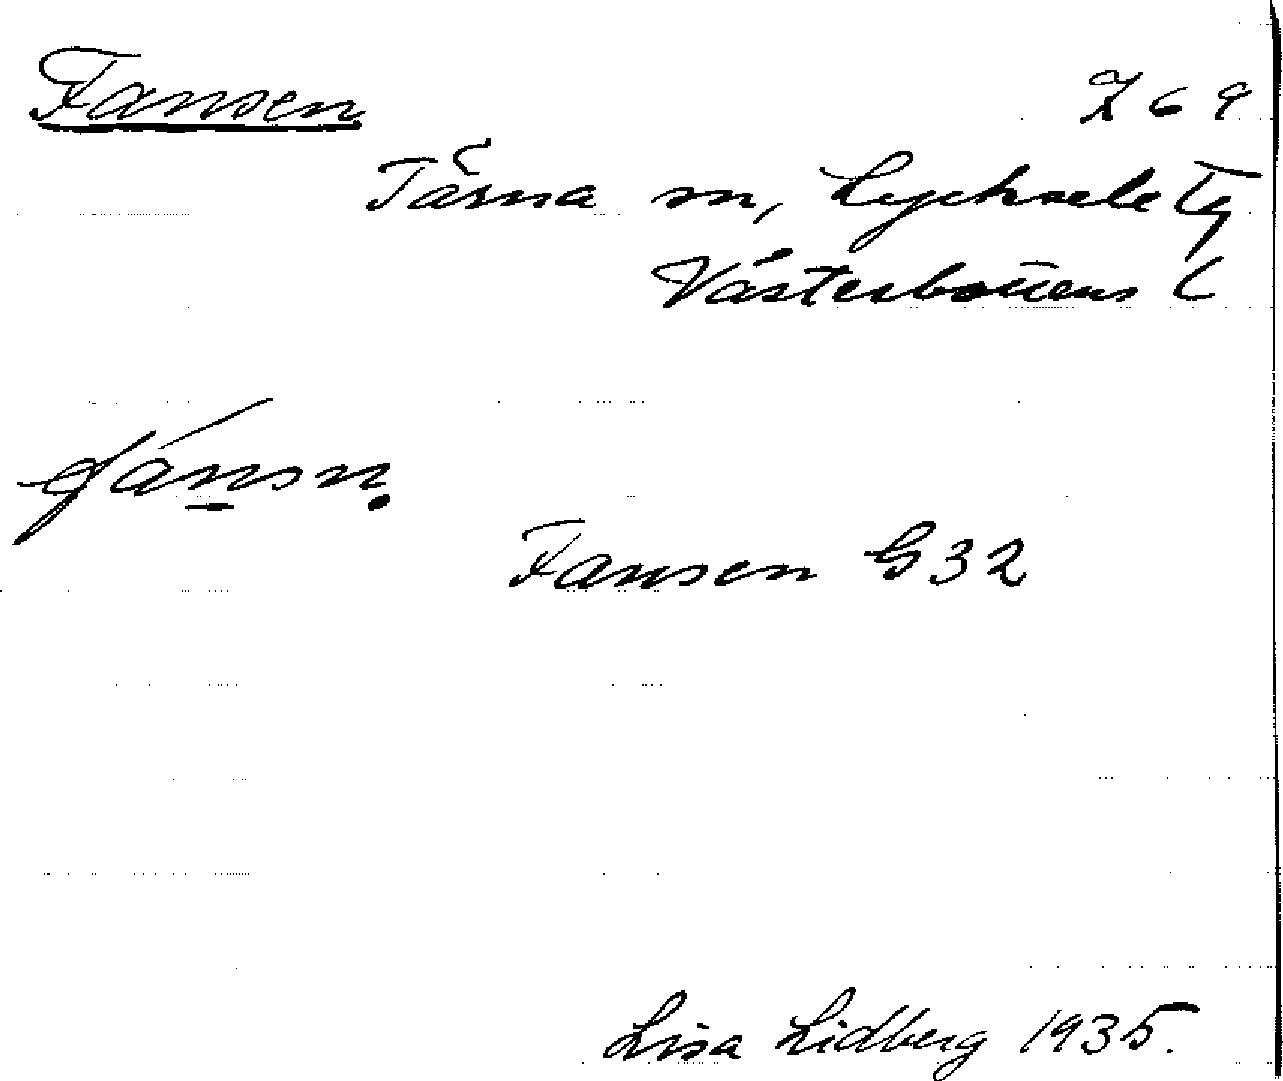 Fansen
Z 69
Tärna sn, Lycksele Tg
Västerbottens l
fánsn̥
Fansen G32
Lisa Lidberg 1935.